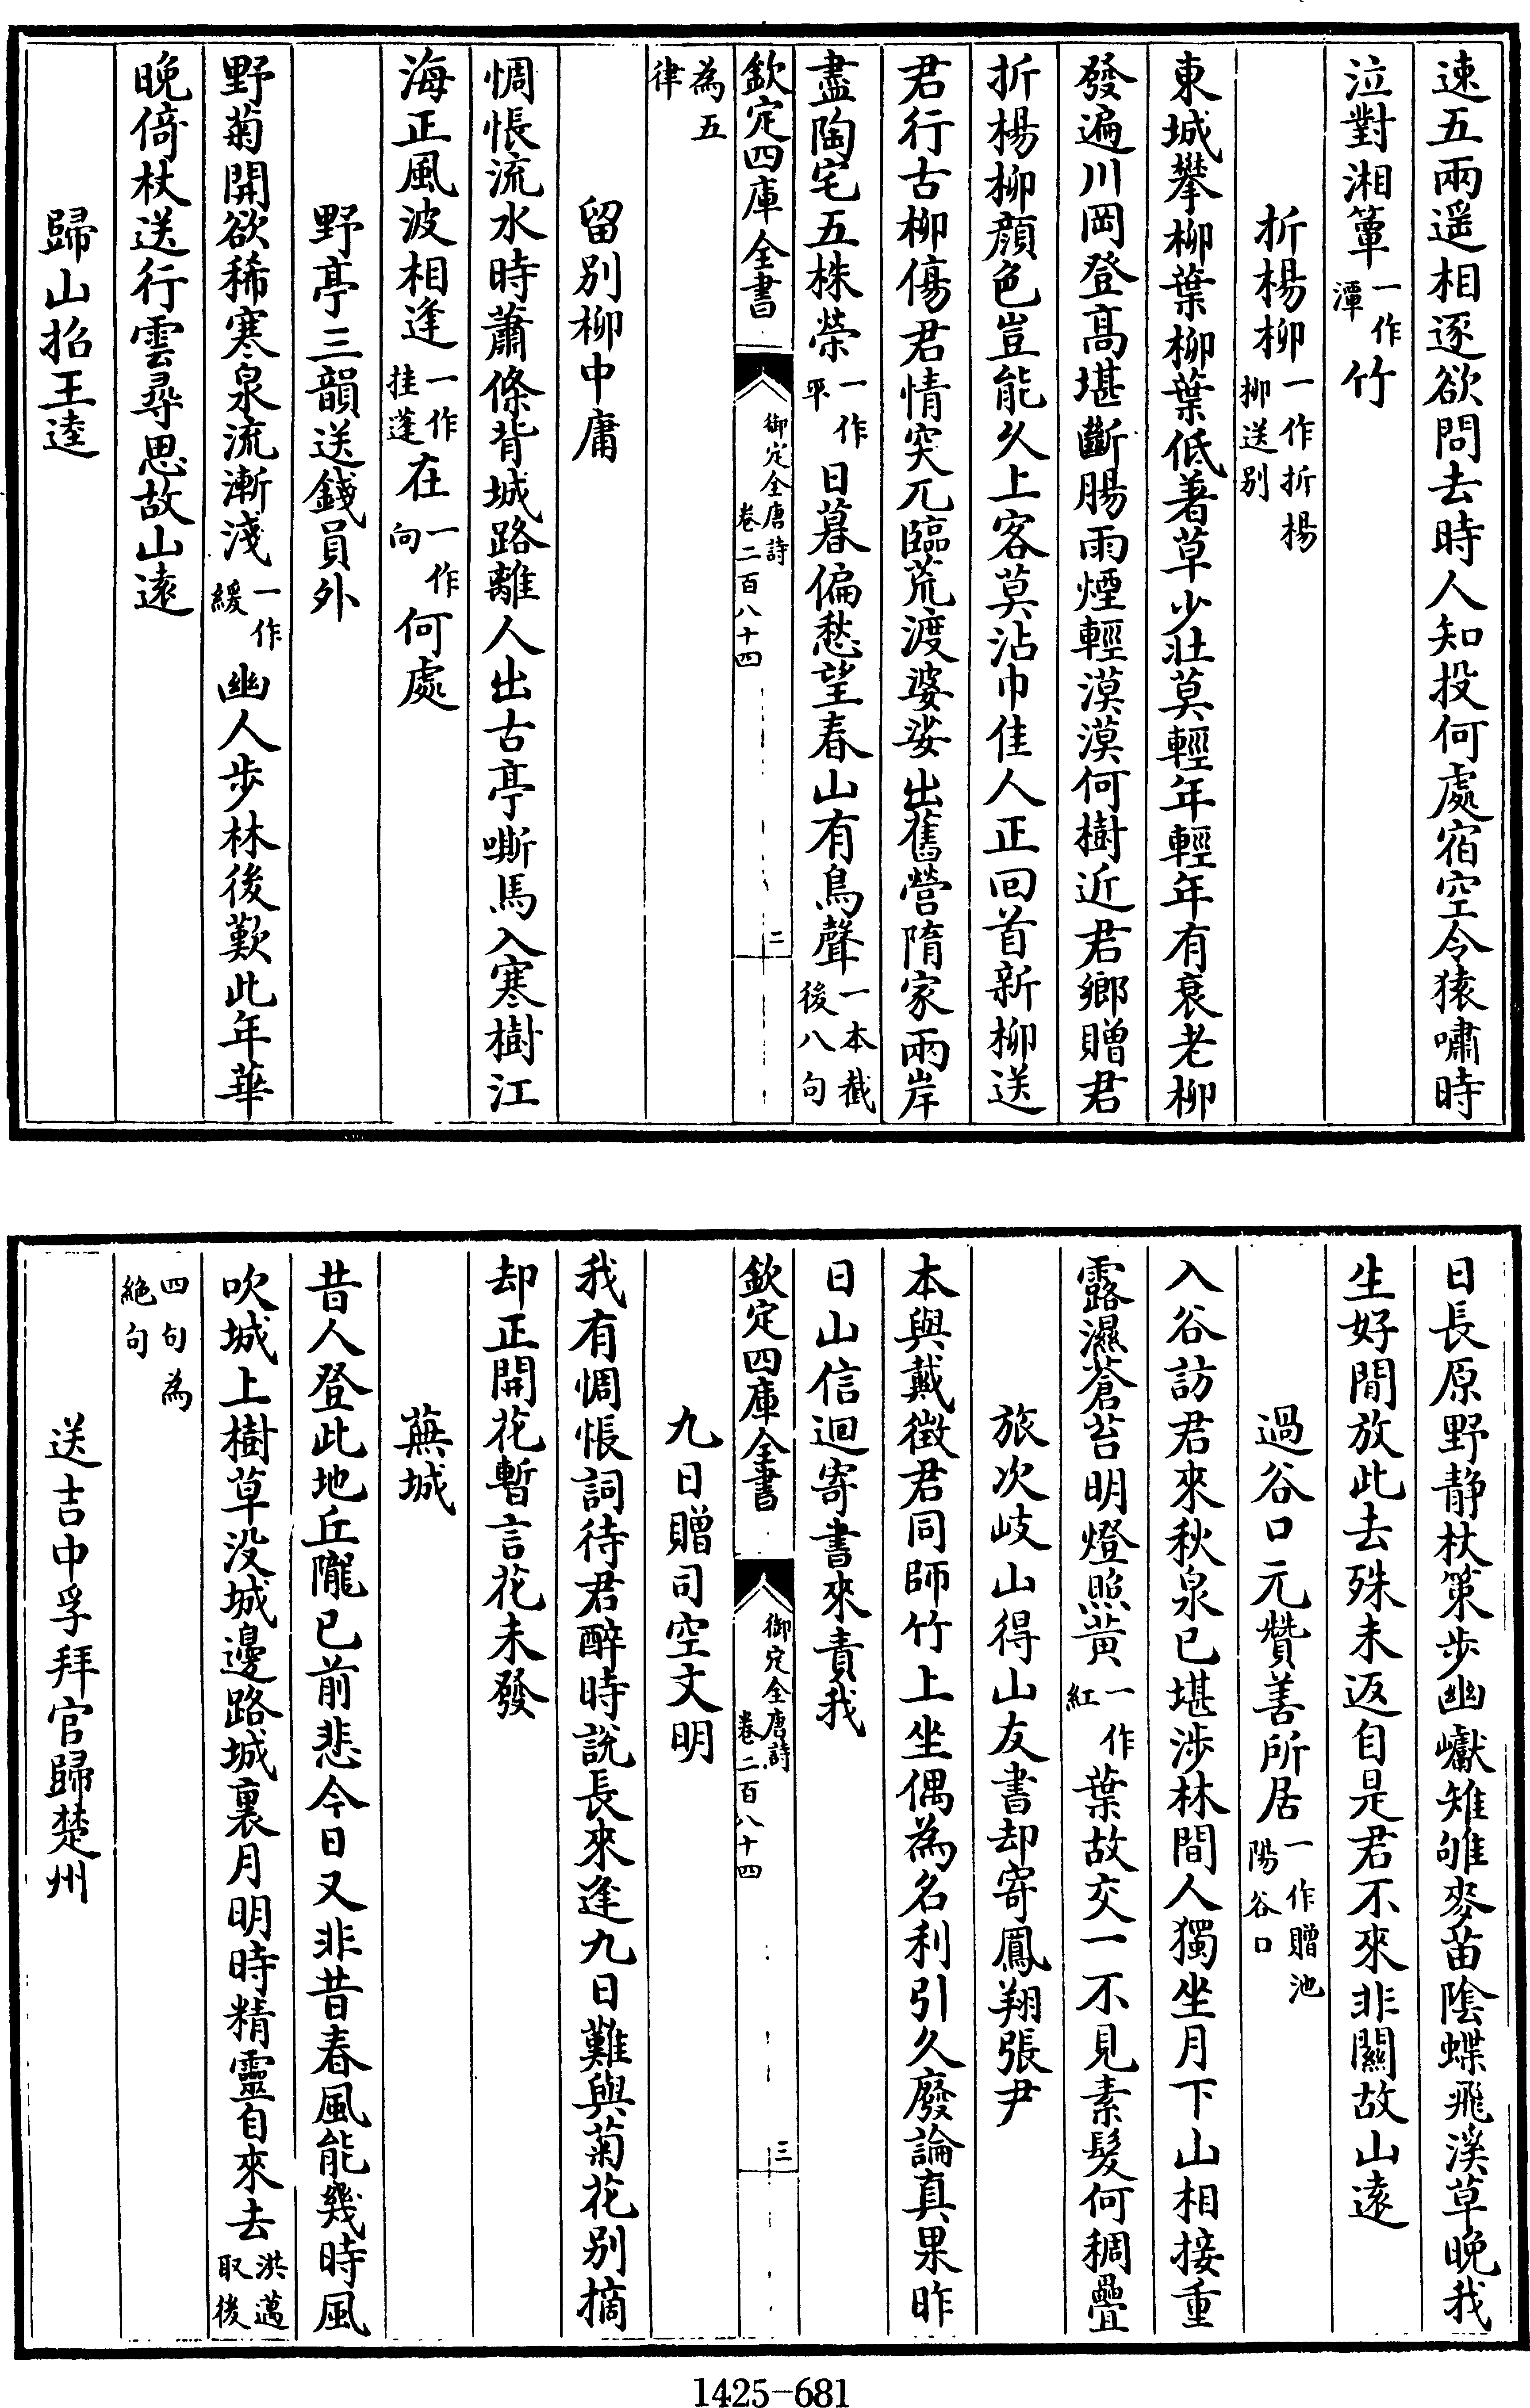 速五兩遥相逐欲問去時人知投何處宿空令猿嘯時
泣對湘簟一作潭竹
折楊柳一作折楊柳送别
東城攀柳葉柳葉低著草少壯莫輕年輕年有衰老柳
發遍川岡登髙堪斷腸雨煙輕漠漠何樹近君鄉贈君
折楊柳顔色豈能久上客莫沾巾佳人正回首新柳送
君行古柳傷君情突兀臨荒渡婆娑出舊營隋家兩岸
盡陶宅五株榮一作平日暮偏愁望春山有鳥聲一本截後八句
欽定四庫全書
御定全唐詩
卷二百八十四
二
為五律
留别柳中庸
惆悵流水時蕭條背城路離人出古亭嘶馬入寒樹江
海正風波相逢一作挂蓬在一作向何處
野亭三韻送錢員外
野菊開欲稀寒泉流漸淺一作緩幽人步林後歎此年華
晚倚杖送行雲尋思故山遠
歸山招王逵
日長原野静杖策步幽巘雉雊麥苗陰蝶飛溪草晚我
生好閒放此去殊未返自是君不來非關故山遠
過谷口元贊善所居一作贈池陽谷口
入谷訪君來秋泉已堪涉林間人獨坐月下山相接重
露濕蒼苔明燈照黄一作紅葉故交一不見素髮何稠疊
旅次岐山得山友書却寄鳳翔張尹
本與戴徵君同師竹上坐偶為名利引久廢論真果昨
日山信迴寄書來責我
欽定四庫全書
御定全唐詩
卷二百八十四
三
九日贈司空文明
我有惆悵詞待君醉時説長來逢九日難與菊花别摘
却正開花暫言花未發
蕪城
昔人登此地丘隴已前悲今日又非昔春風能幾時風
吹城上樹草没城邊路城裏月明時精靈自來去洪邁取後
四句為絶句
送吉中孚拜官歸楚州
1425-681